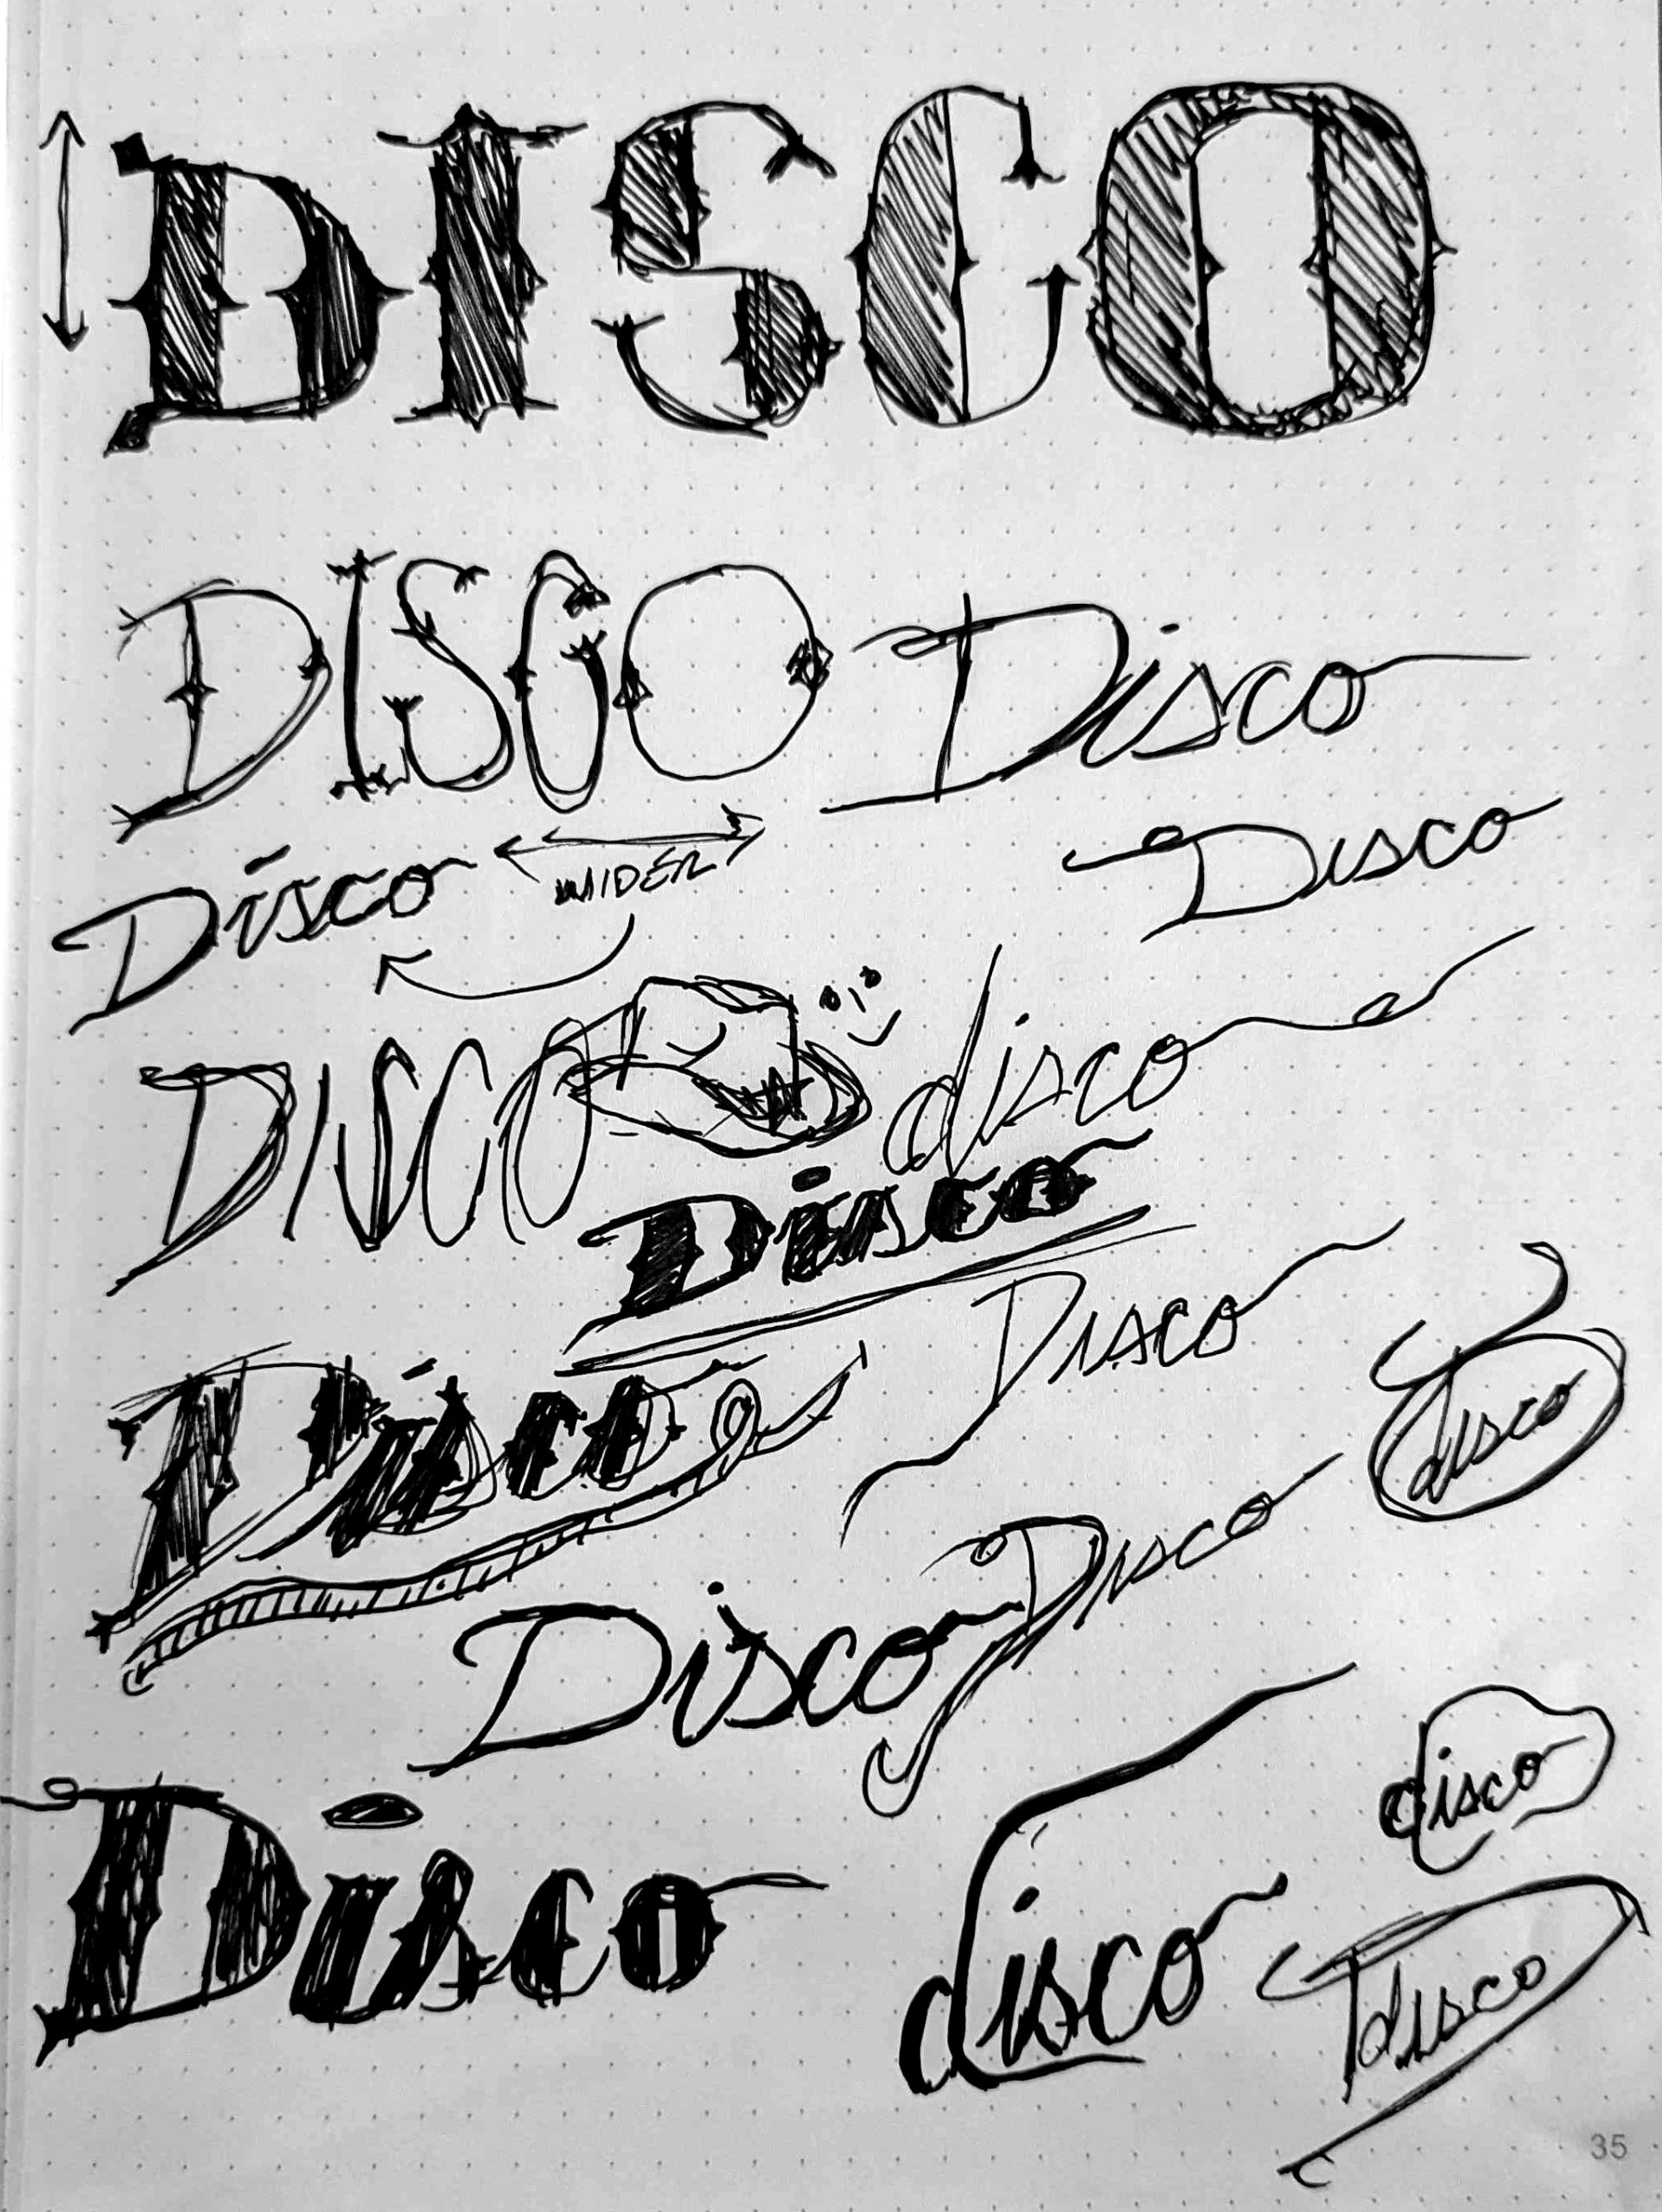 DISCO
DISCO Disco
Disco
Disco WIDER
DISCO disco
Disco
Disco
Disco
disco
Disco
Disco
disco
Disco disco
disco
35